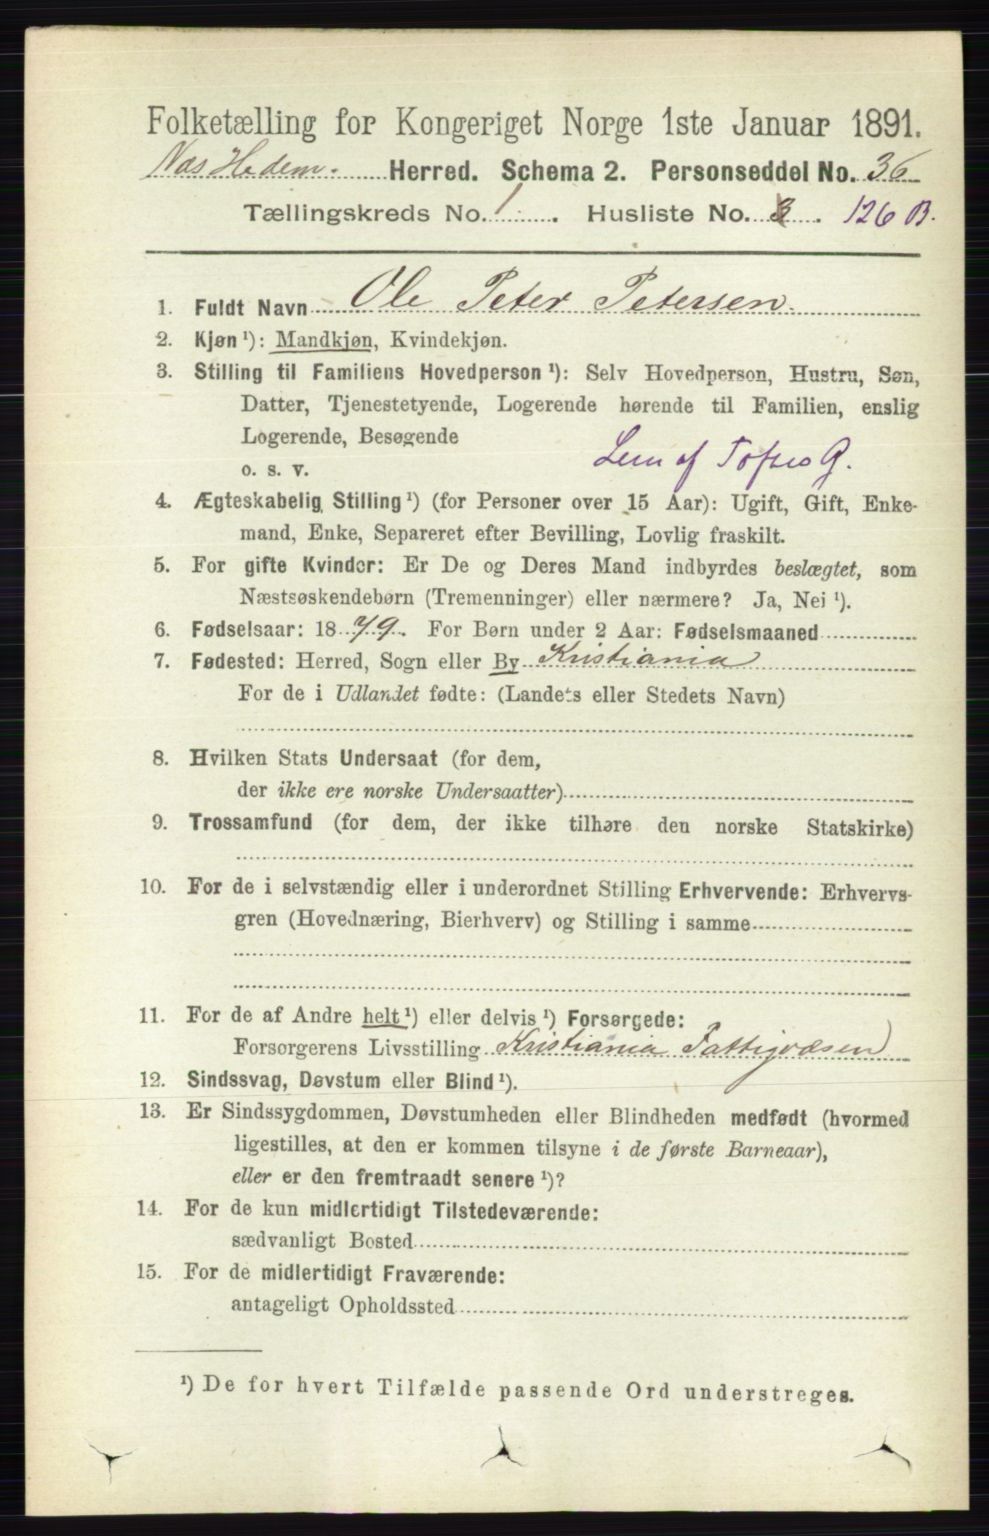 Folketælling for Kongeriget Norge 1ste Januar 1891.
Nes Hedem. Herred. Schema 2. Personseddel No. 36
Tællingskreds No. 1. Husliste No. 3. 126 B.
1. Fuldt Navn Ole Peter Petersen.
2. Kjøn ¹): Mandkjøn, Kvindekjøn.
3. Stilling til Familiens Hovedperson ¹): Selv Hovedperson, Hustru, Søn,
Datter, Tjenestetyende, Logerende hørende til Familien, enslig
Logerende, Besøgende
o. s. v. Lem af Toftes G.
4. Ægteskabelig Stilling ¹) (for Personer over 15 Aar): Ugift, Gift, Enke-
mand, Enke, Separeret efter Bevilling, Lovlig fraskilt.
5. For gifte Kvinder: Er De og Deres Mand indbyrdes beslægtet, som
Næstsøskendebørn (Tremenninger) eller nærmere? Ja, Nei ¹).
6. Fødselsaar: 1879. For Børn under 2 Aar: Fødselsmaaned
7. Fødested: Herred, Sogn eller By Kristiania
For de i Udlandet fødte: (Landets eller Stedets Navn)
8. Hvilken Stats Undersaat (for dem,
der ikke ere norske Undersaatter)
9. Trossamfund (for dem, der ikke tilhøre den norske Statskirke)
10. For de i selvstændig eller i underordnet Stilling Erhvervende: Erhvervs-
gren (Hovednæring, Bierhverv) og Stilling i samme
11. For de af Andre helt ¹) eller delvis ¹) Forsørgede:
Forsørgerens Livsstilling Kristiania Fattigvæsen
12. Sindssvag, Døvstum eller Blind ¹).
13. Er Sindssygdommen, Døvstumheden eller Blindheden medfødt (hvormed
ligestilles, at den er kommen tilsyne i de første Barneaar),
eller er den fremtraadt senere ¹)?
14. For de kun midlertidigt Tilstedeværende:
sædvanligt Bosted
15. For de midlertidigt Fraværende:
antageligt Opholdssted
¹) De for hvert Tilfælde passende Ord understreges.